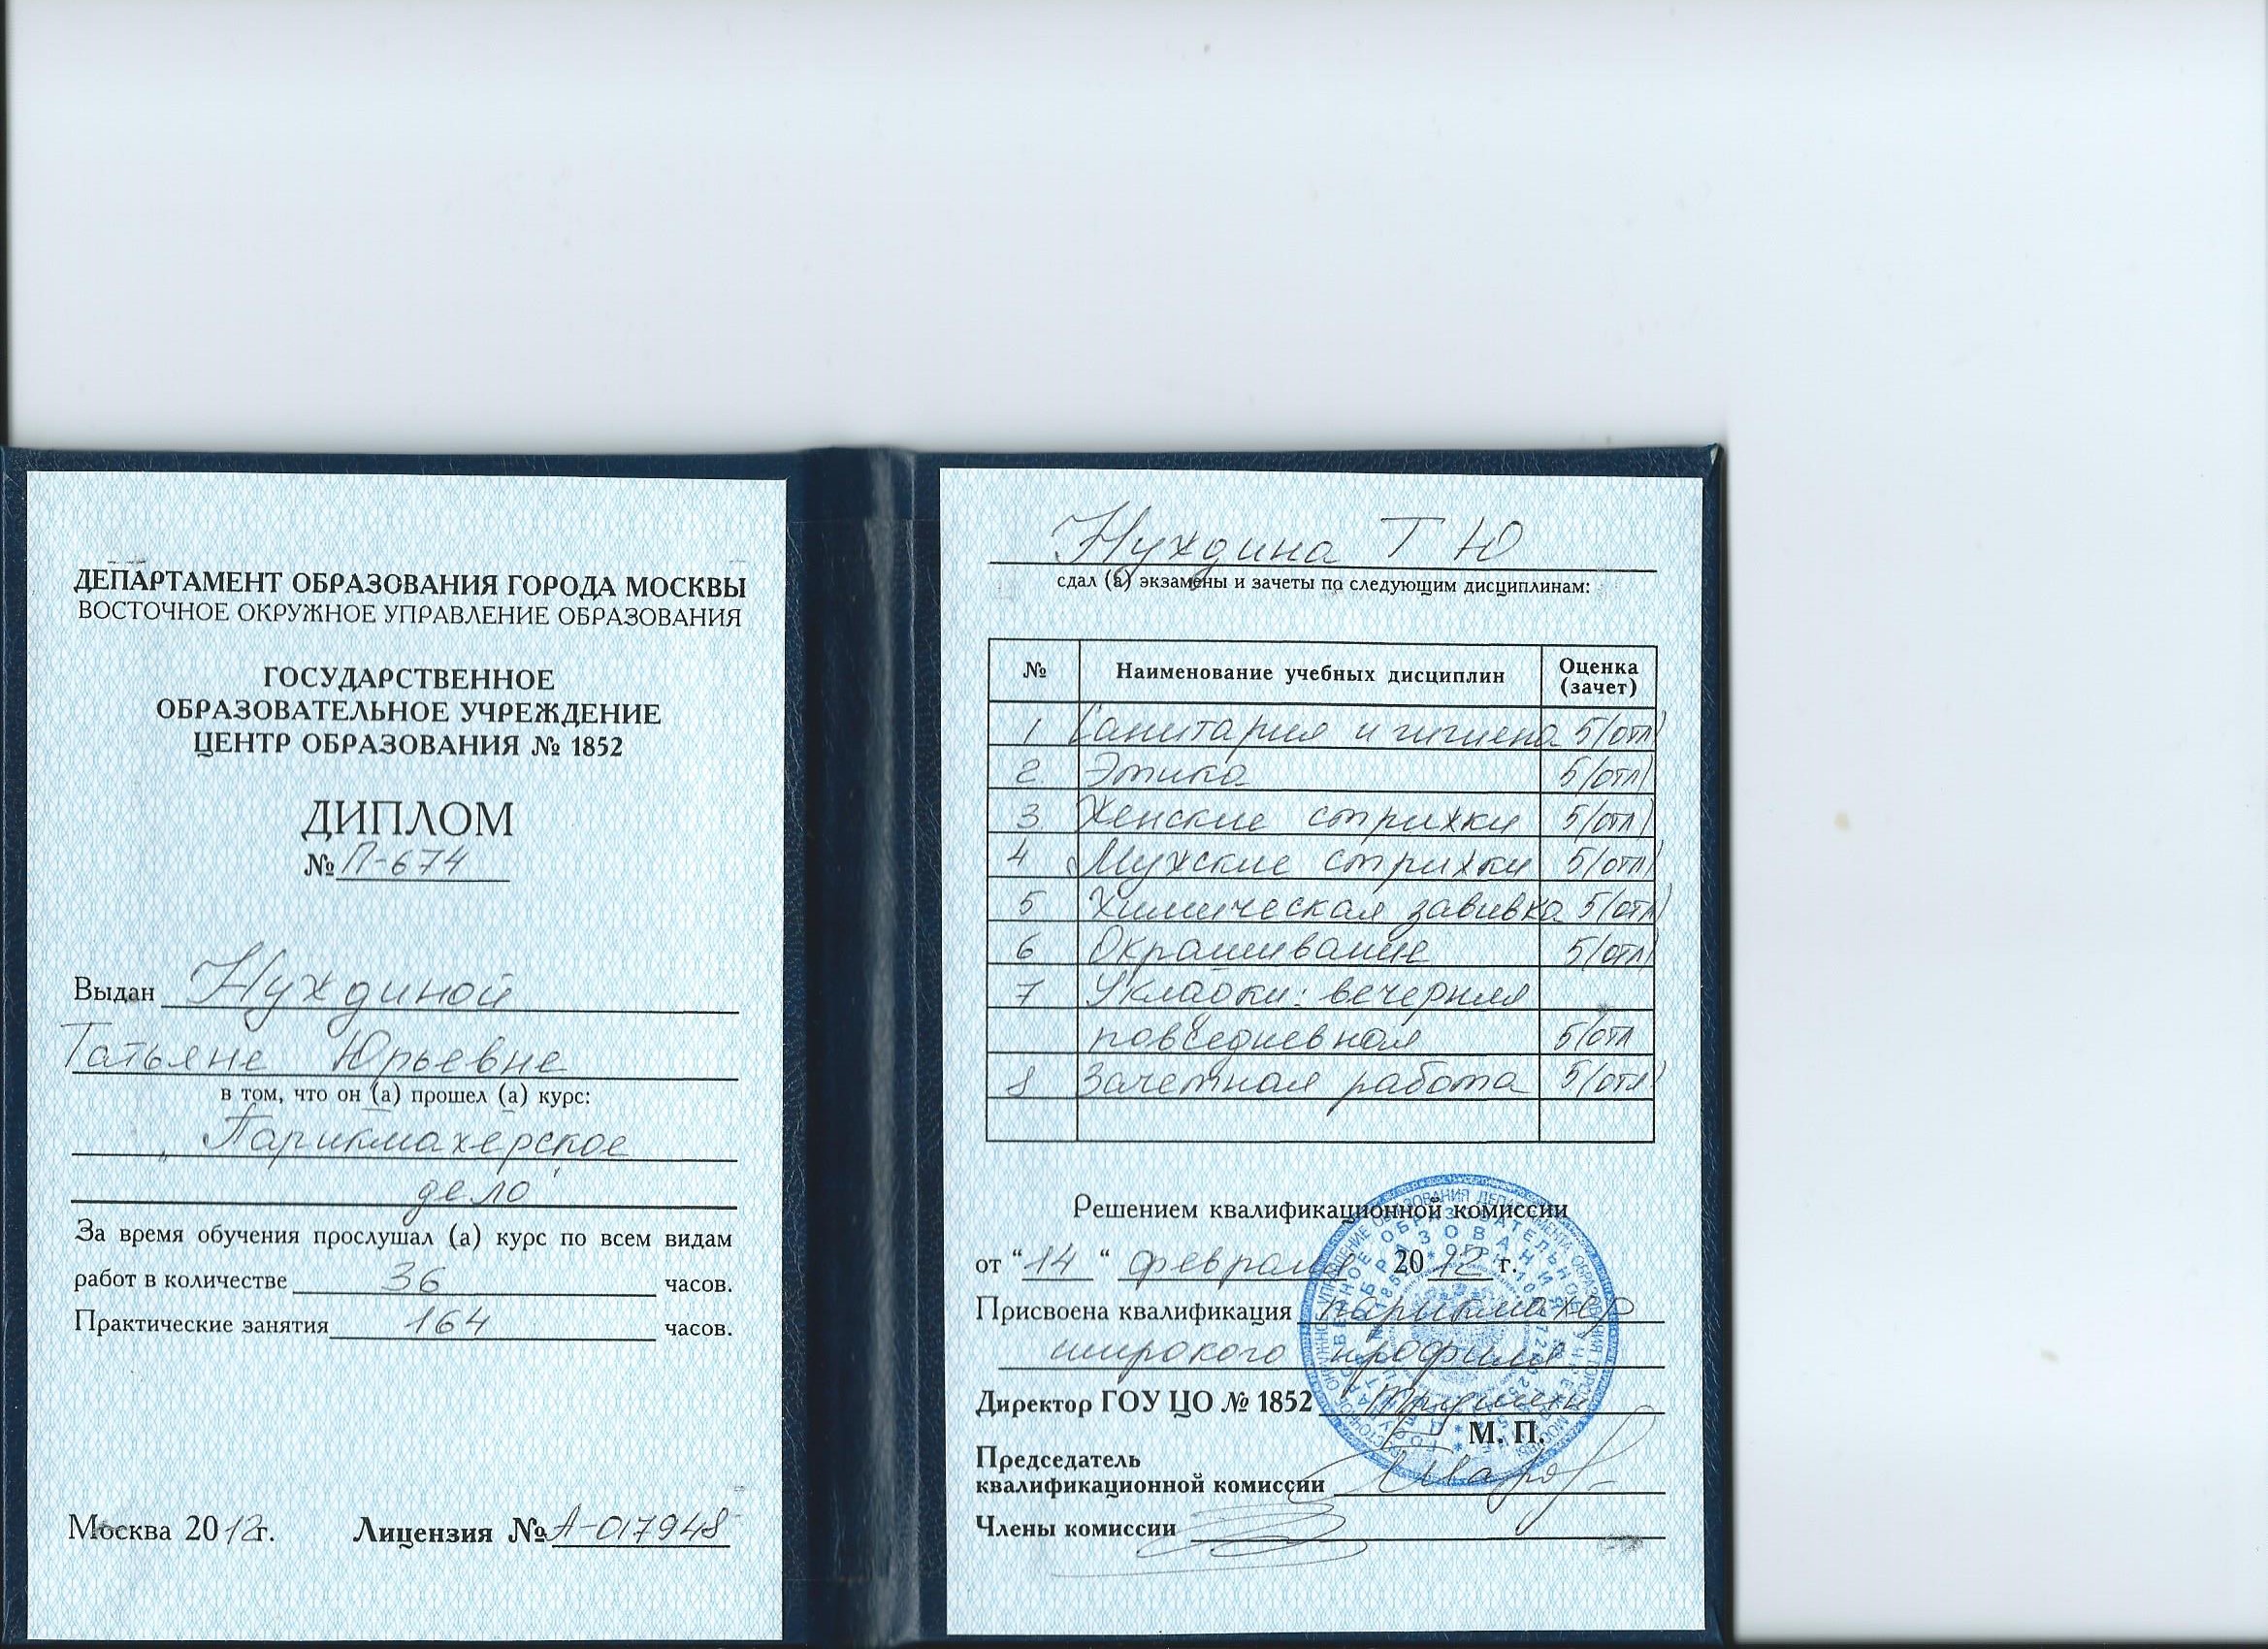 ДЕПАРТАМЕНТ ОБРАЗОВАНИЯ ГОРОДА МОСКВЫ
ВОСТОЧНОЕ ОКРУЖНОЕ УПРАВЛЕНИЕ ОБРАЗОВАНИЯ
ГОСУДАРСТВЕННОЕ
ОБРАЗОВАТЕЛЬНОЕ УЧРЕЖДЕНИЕ
ЦЕНТР ОБРАЗОВАНИЯ № 1852
ДИПЛОМ
№ П-674
Выдан Нуждиной
Татьяне Юрьевне
в том, что он (а) прошел (а) курс:
„Парикмахерское
дело"
За время обучения прослушал (а) курс по всем видам
работ в количестве 36 часов.
Практические занятия 164 часов.
Москва 2012г. Лицензия № А-017948
Нуждина Т Ю
сдал (а) экзамены и зачеты по следующим дисциплинам:
№ Наименование учебных дисциплин Оценка (зачет)
1 Санитария и гигиена 5(отл)
2. Этика 5(отл)
3 Женские стрижки 5(отл)
4 Мужские стрижки 5(отл)
5 Химическая завивка 5(отл)
6 Окрашивание 5(отл)
7 Укладки: вечерняя
повседневная 5(отл
8 Зачетная работа 5(отл)
Решением квалификационной комиссии
от “14“ февраля 2012 г.
Присвоена квалификация парикмахер
широкого профиля
Директор ГОУ ЦО № 1852
М. П.
Председатель
квалификационной комиссии
Члены комиссии